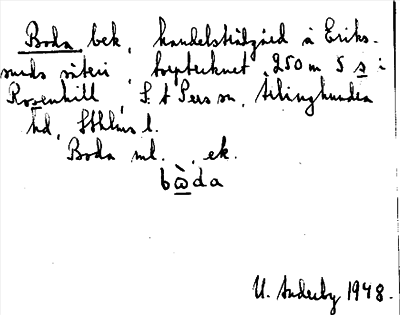 Boda bek, handelsträdgård å Eriks-
sunds säteri, torptecknet 250 m S s i
Rosenhill, S:t Pers sn, Ärlinghundra
hd, Sthlms l.
Boda ml. , ek.
bὼda
U. Anderby 1948.